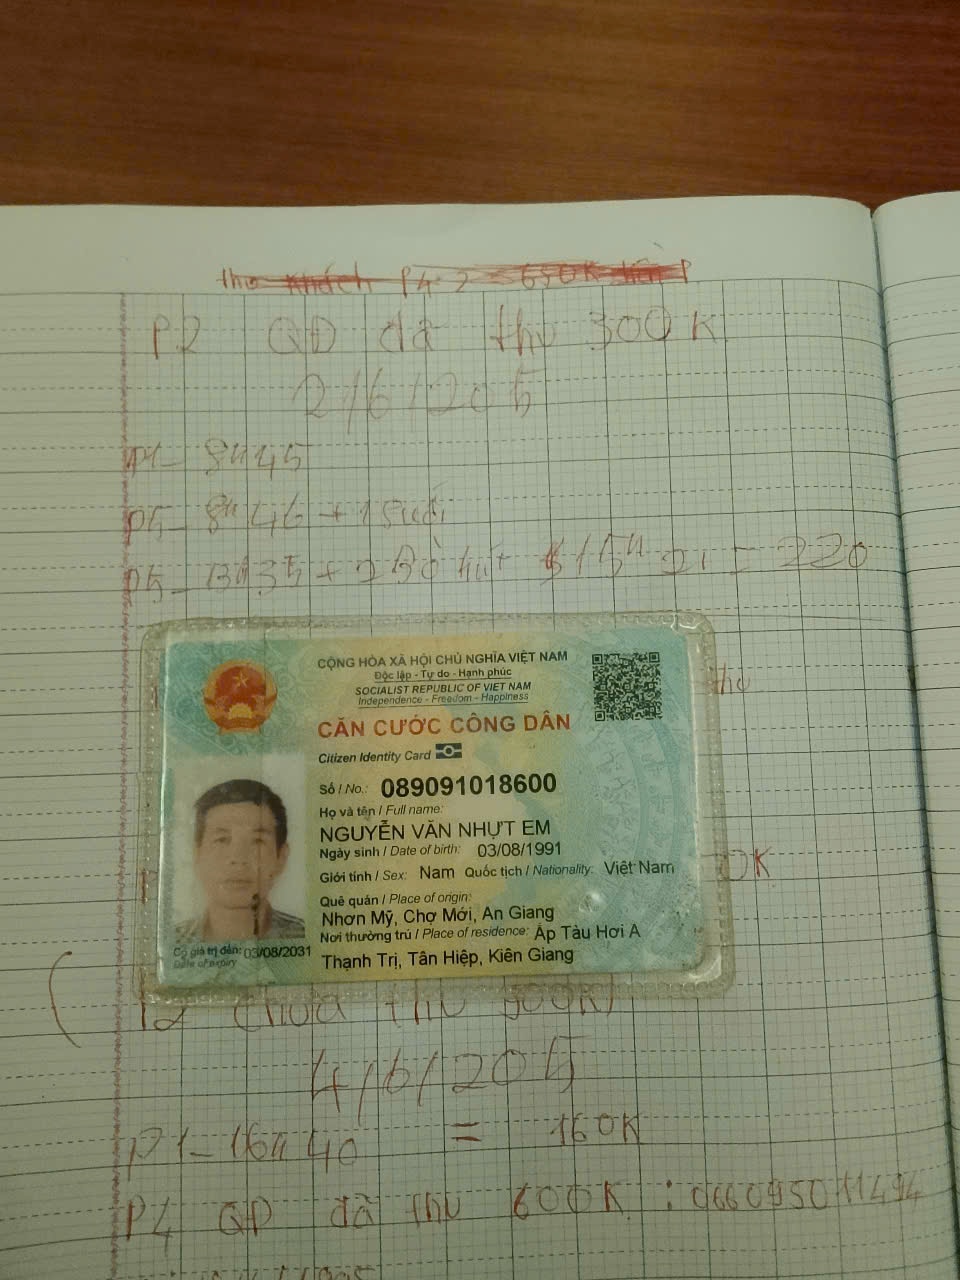 thu khách P4 2 650K
P2 QĐ đã thu 300K
2/6/205
P1- 8h45
P5- 8h46 + 1 suối
P5- 13h35 + = 220
CỘNG HÒA XÃ HỘI CHỦ NGHĨA VIỆT NAM
Độc lập - Tự do - Hạnh phúc
SOCIALIST REPUBLIC OF VIET NAM
Independence - Freedom - Happiness
thu
CĂN CƯỚC CÔNG DÂN
Citizen Identity Card
Số / No.: 089091018600
Họ và tên / Full name:
NGUYỄN VĂN NHỰT EM
Ngày sinh / Date of birth: 03/08/1991
Giới tính / Sex: Nam Quốc tịch / Nationality: Việt Nam
0K
Quê quán / Place of origin:
Nhơn Mỹ, Chợ Mới, An Giang
Nơi thường trú / Place of residence: Ấp Tàu Hơi A
Thạnh Trị, Tân Hiệp, Kiên Giang
Có giá trị đến: 03/08/2031
Date of expiry
(P2 chưa thu 900K)
4/6/205
P1- 16h40 = 160K
P4 QĐ đã thu 600K : 066095011494